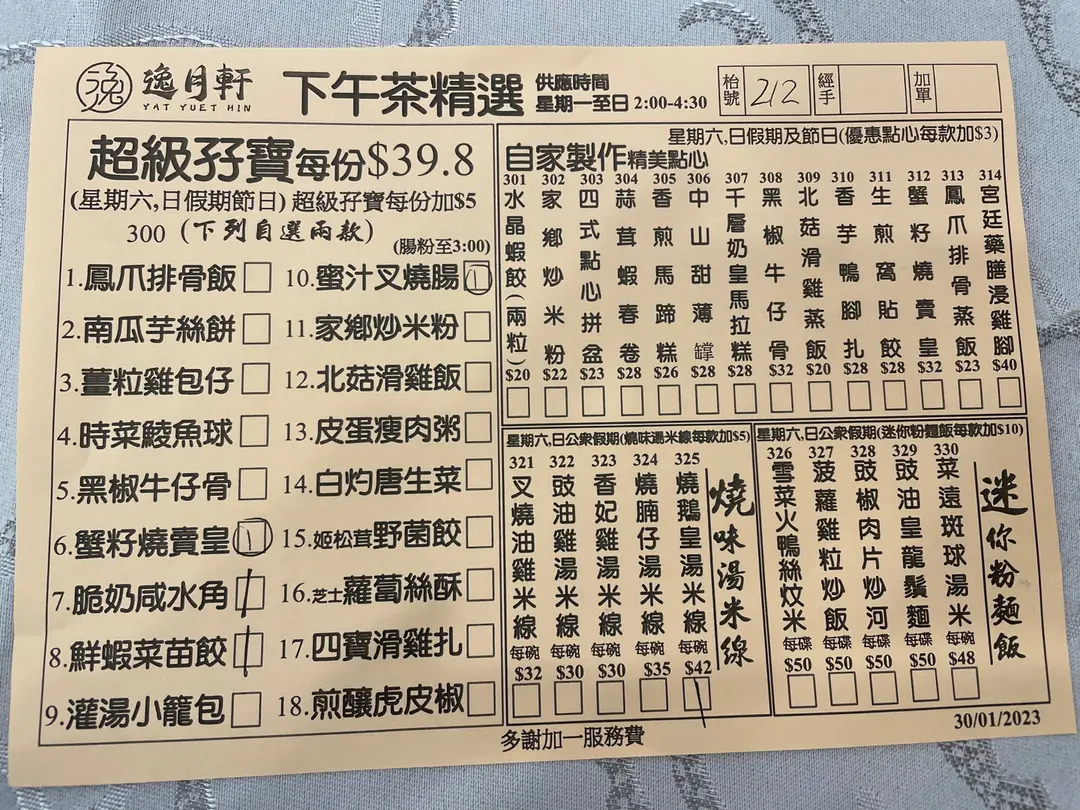 逸 逸月軒
YAT YUET HIN
下午茶精選
供應時間
星期一至日 2:00-4:30
枱號 212
經手
加單
超級孖寶每份$39.8
(星期六,日假期節日) 超級孖寶每份加$5
300 (下列自選兩款)
(腸粉至3:00)
1.鳳爪排骨飯
2.南瓜芋絲餅
3.薑粒雞包仔
4.時菜鯪魚球
5.黑椒牛仔骨
6.蟹籽燒賣皇 1
7.脆奶咸水角 /
8.鮮蝦菜苗餃 /
9.灌湯小籠包
10.蜜汁叉燒腸 1
11.家鄉炒米粉
12.北菇滑雞飯
13.皮蛋瘦肉粥
14.白灼唐生菜
15.姬松茸野菌餃
16.芝士蘿蔔絲酥
17.四寶滑雞扎
18.煎釀虎皮椒
星期六,日假期及節日(優惠點心每款加$3)
自家製作精美點心
301 水晶蝦餃(兩粒) $20
302 家鄉炒米粉 $22
303 四式點心拼盆 $23
304 蒜茸蝦春卷 $28
305 香煎馬蹄糕 $26
306 中山甜薄罉 $28
307 千層奶皇馬拉糕 $28
308 黑椒牛仔骨 $32
309 北菇滑雞蒸飯 $20
310 香芋鴨腳扎 $28
311 生煎窩貼餃 $28
312 蟹籽燒賣皇 $32
313 鳳爪排骨蒸飯 $23
314 宮廷藥膳浸雞腳 $40
星期六,日公眾假期(燒味湯米線每款加$5)
燒味湯米線
321 叉燒油雞米線 每碗 $32
322 豉油雞湯米線 每碗 $30
323 香妃雞湯米線 每碗 $30
324 燒腩仔湯米線 每碗 $35
325 燒鵝皇湯米線 每碗 $42 /
星期六,日公衆假期(迷你粉麵飯每款加$10)
迷你粉麵飯
326 雪菜火鴨絲炆米 每碗 $50
327 菠蘿雞粒炒飯 每碟 $50
328 豉椒肉片炒河 每碟 $50
329 豉油皇龍鬚麵 每碟 $50
330 菜遠斑球湯米 每碗 $48
多謝加一服務費
30/01/2023